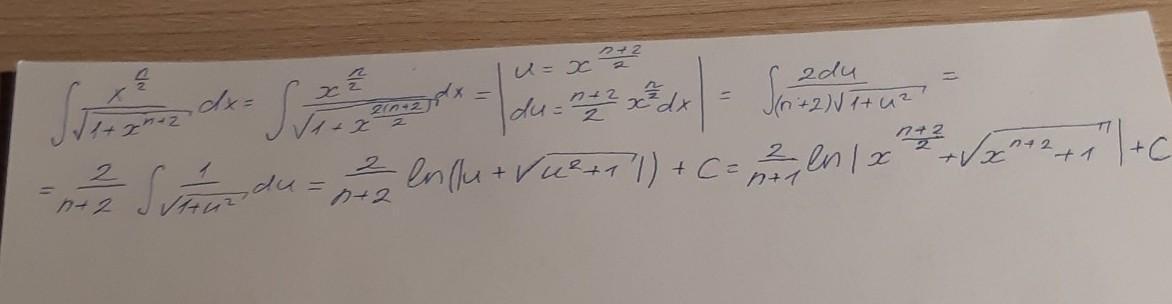 ∫ x^(n/2) / √(1+x^(n+2)) dx = ∫ x^(n/2) / √(1+x^(2(n+2)/2)) dx = | u = x^((n+2)/2) ; du = (n+2)/2 x^(n/2) dx | = ∫ 2du / ((n+2)√(1+u²)) =
= 2/(n+2) ∫ 1/√(1+u²) du = 2/(n+2) ln(|u + √(u²+1)|) + C = 2/(n+1) ln| x^((n+2)/2) + √(x^(n+2)+1) | + C